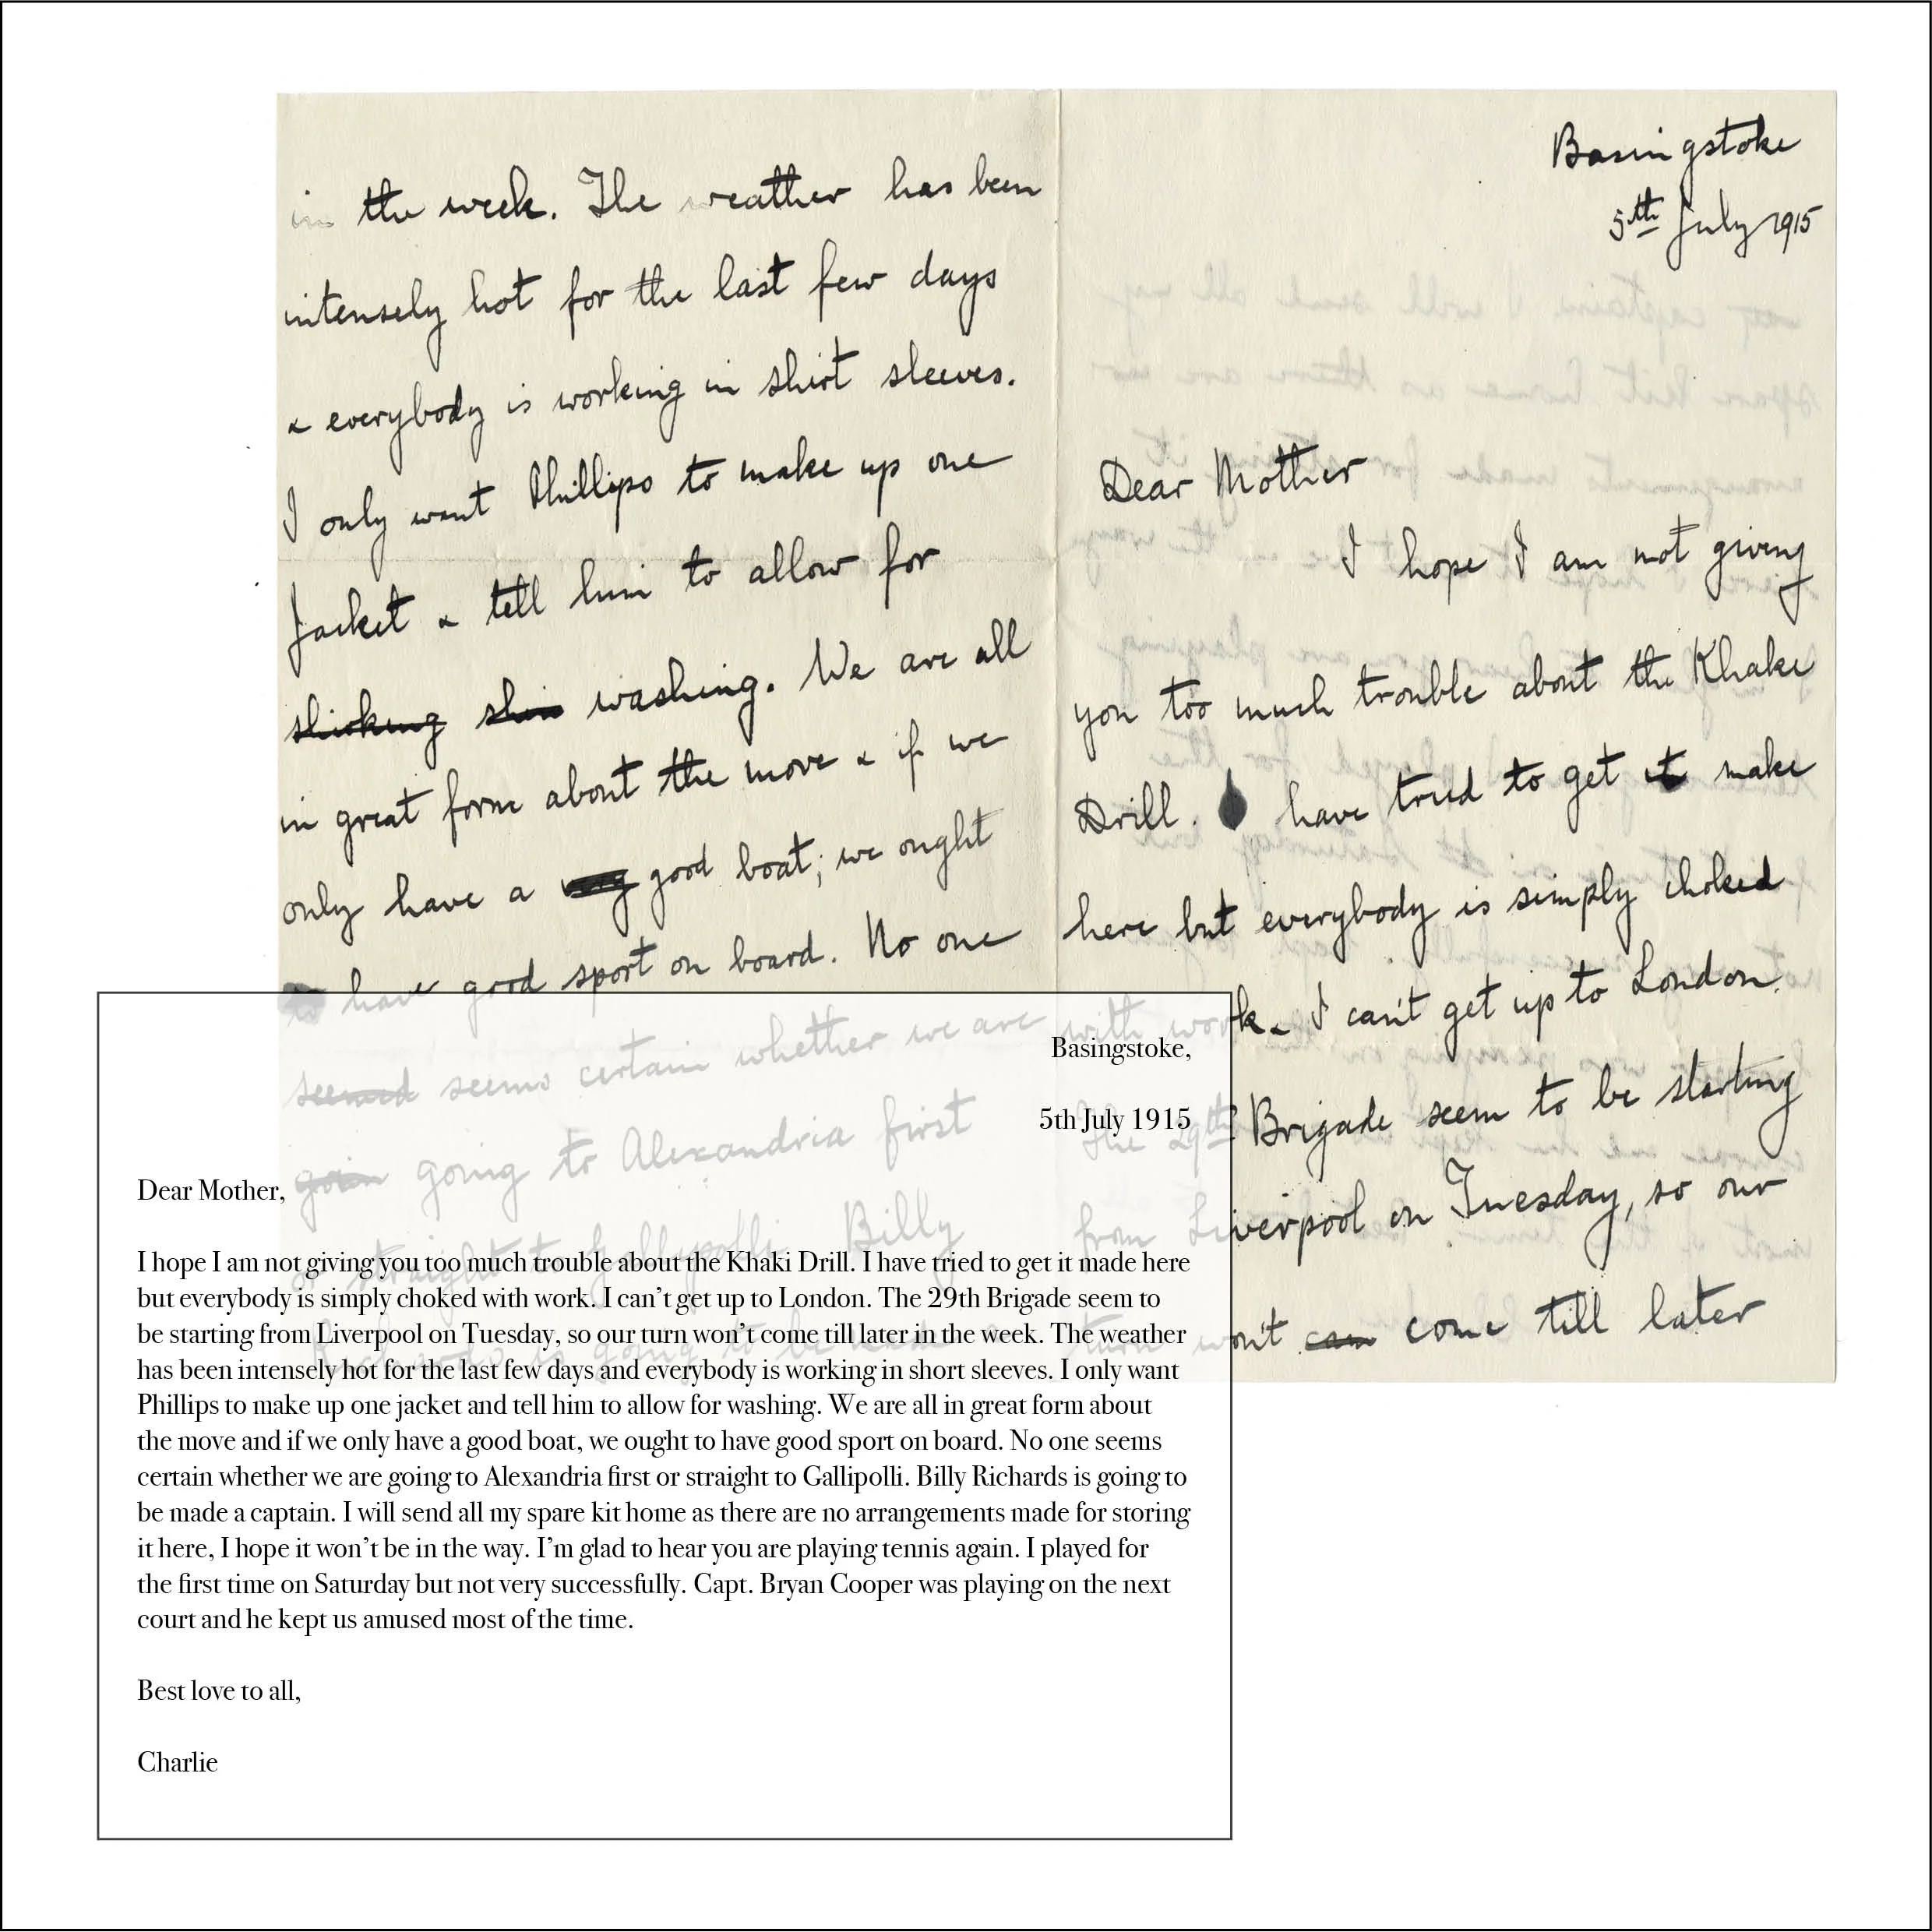 Basingstoke
5th July 1915
Dear Mother
I hope I am not giving
you too much trouble about the Khake
Drill. have tried to get it make
here but everybody is simply choked
with work & I can't get up to London.
The 29th Brigade seem to be starting
from Liverpool on Tuesday, so our
turn won't can come till later
in the week. The weather has been
intensely hot for the last few days
& everybody is working in shirt sleeves.
I only want Phillips to make up one
Jacket & tell him to allow for
washing. We are all
in great form about the move & if we
only have a very good boat; we ought
to have good sport on board. No one
seemed seems certain whether we are
goin going to Alexandria first
or straight to Gallipolli. Billy
Richards is going to be made
Basingstoke,
5th July 1915
Dear Mother,
I hope I am not giving you too much trouble about the Khaki Drill. I have tried to get it made here
but everybody is simply choked with work. I can't get up to London. The 29th Brigade seem to
be starting from Liverpool on Tuesday, so our turn won't come till later in the week. The weather
has been intensely hot for the last few days and everybody is working in short sleeves. I only want
Phillips to make up one jacket and tell him to allow for washing. We are all in great form about
the move and if we only have a good boat, we ought to have good sport on board. No one seems
certain whether we are going to Alexandria first or straight to Gallipolli. Billy Richards is going to
be made a captain. I will send all my spare kit home as there are no arrangements made for storing
it here, I hope it won't be in the way. I'm glad to hear you are playing tennis again. I played for
the first time on Saturday but not very successfully. Capt. Bryan Cooper was playing on the next
court and he kept us amused most of the time.
Best love to all,
Charlie